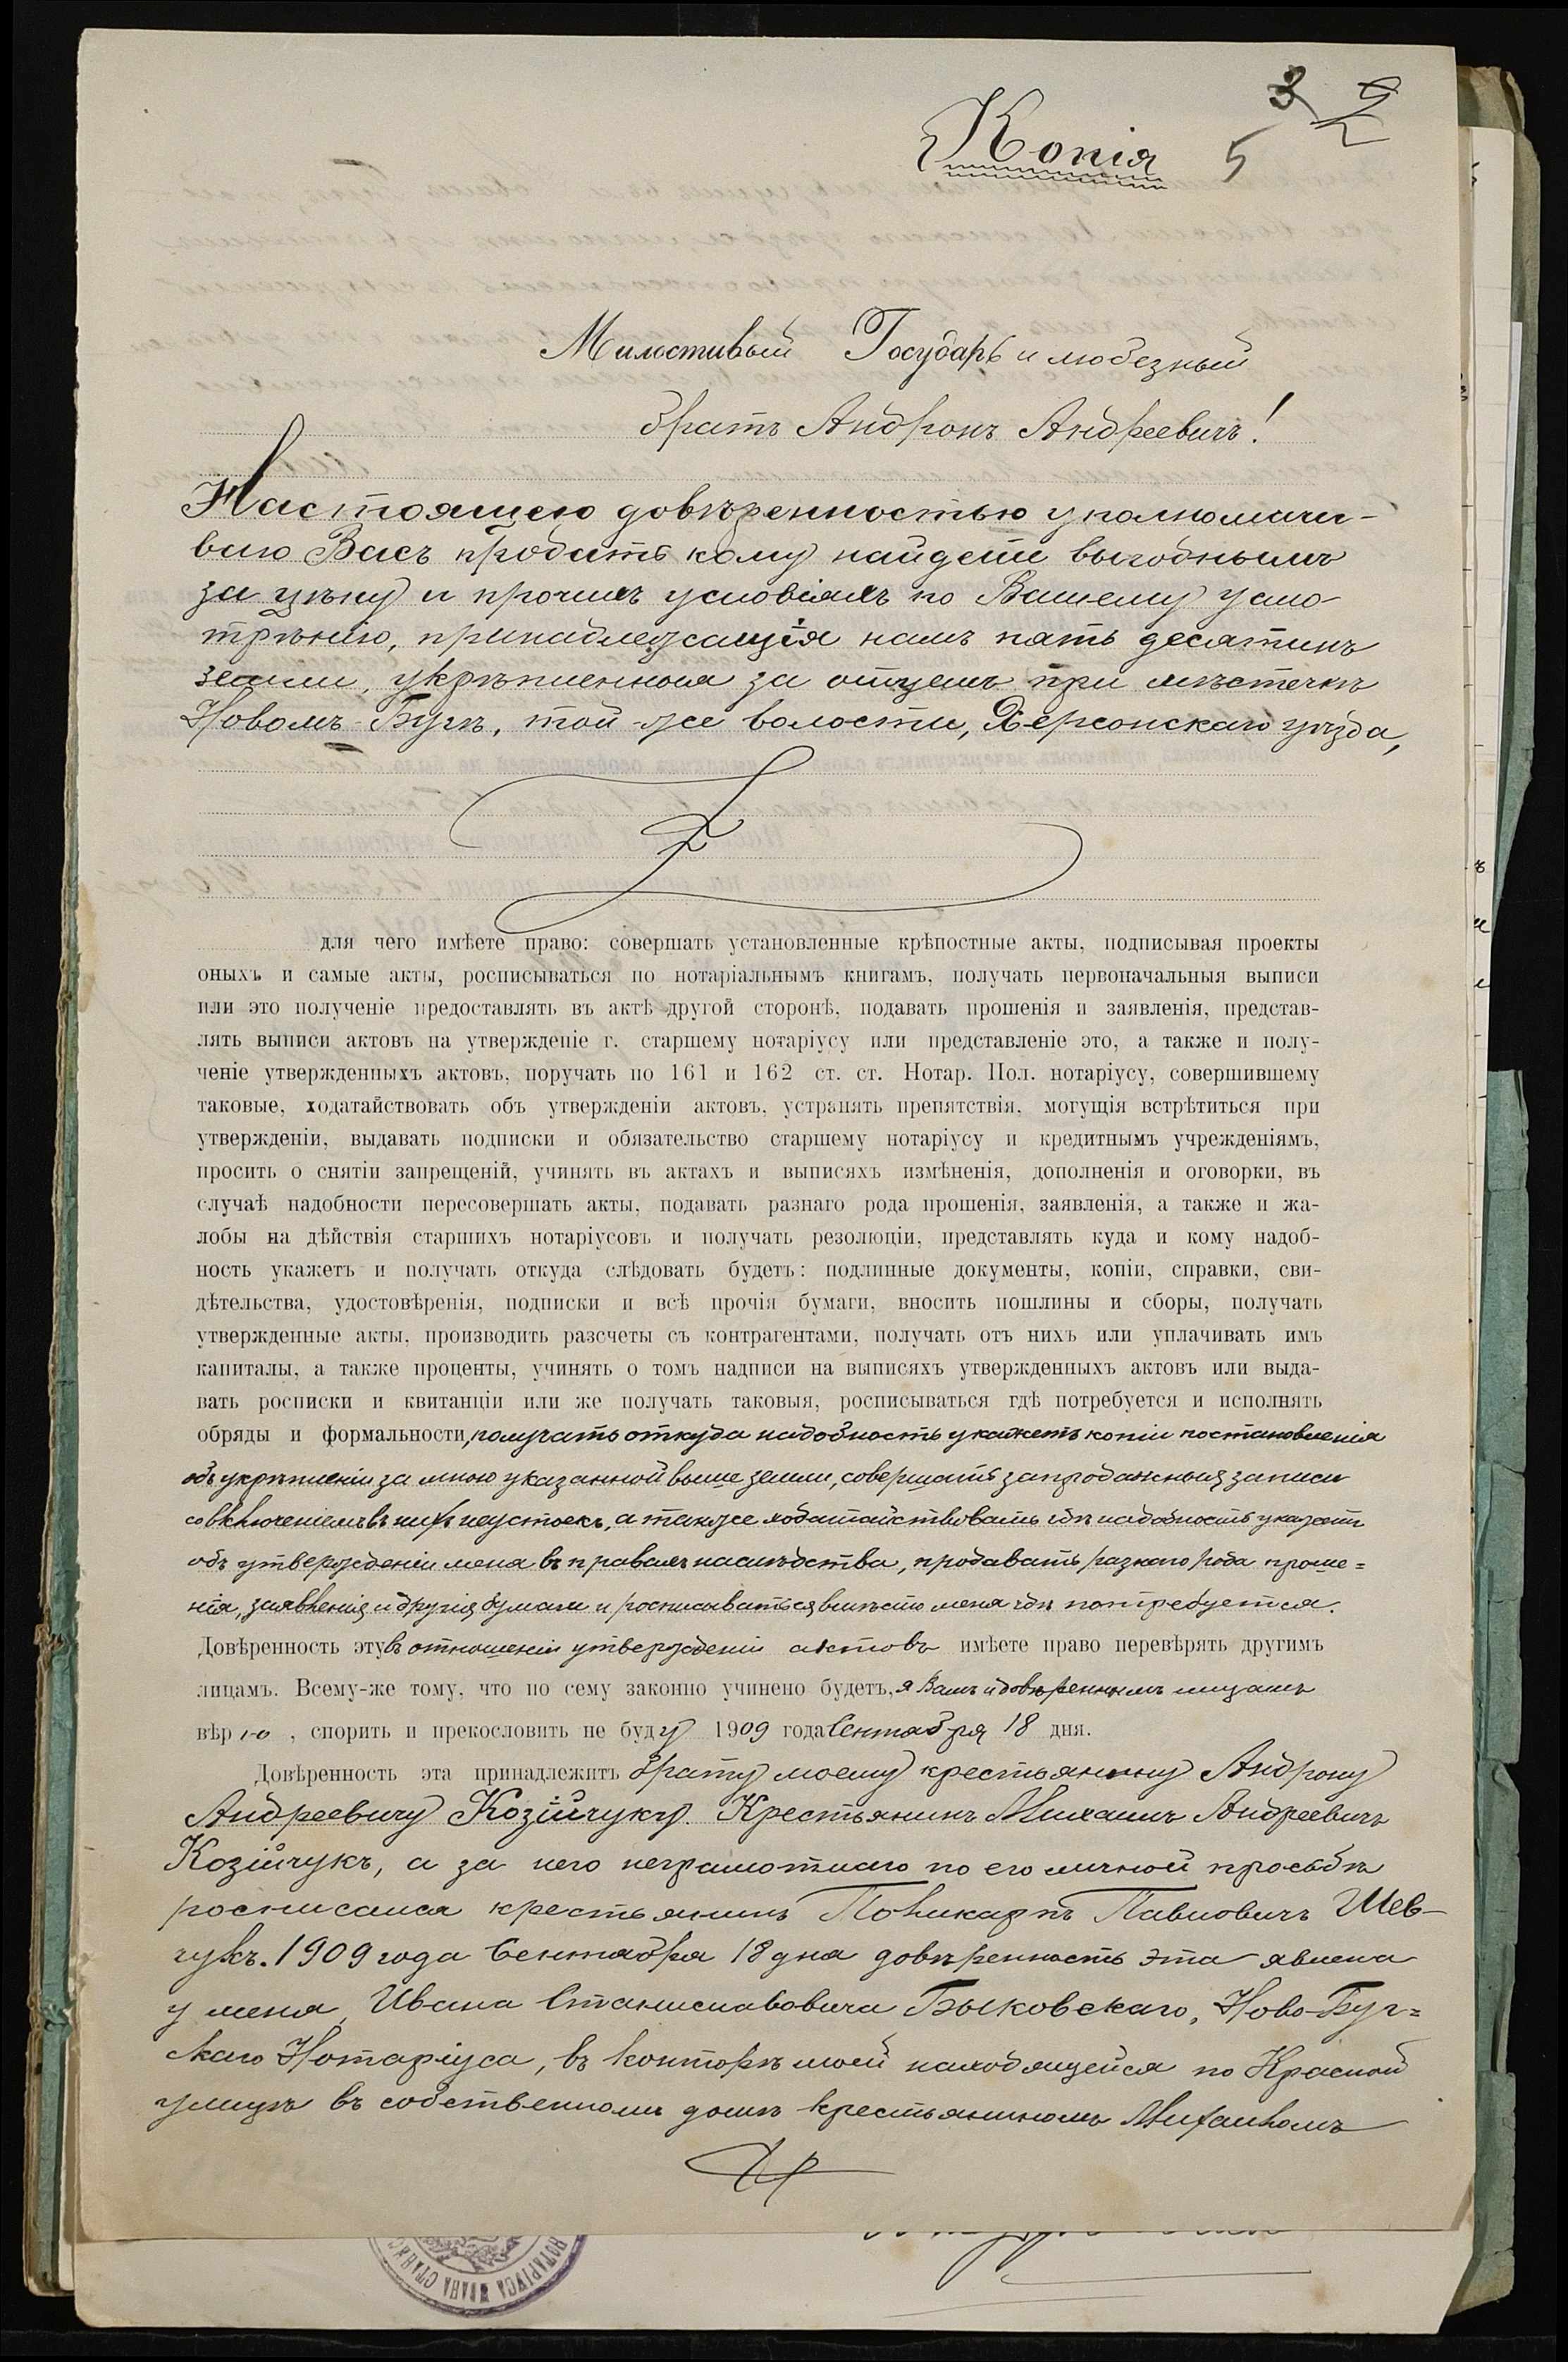 3 2
Копія 5
Милостивый Государь и любезный
братъ Андронъ Андреевичъ!
Настоящею довѣренностью уполномачи-
ваю Васъ продать кому найдете выгоднымъ
за цѣну и прочимъ условіямъ по Вашему усмо-
трѣнію, принадлежащія намъ пять десятинъ
земли, укрѣпленныя за отцемъ при мѣстечкѣ
Новомъ-Бугѣ, той-же волости, Херсонскаго уѣзда,
для чего имѣете право: совершать установленные крѣпостные акты, подписывая проекты
оныхъ и самые акты, росписываться по нотаріальнымъ книгамъ, получать первоначальныя выписи
или это полученіе предоставлять въ актѣ другой сторонѣ, подавать прошенія и заявленія, представ-
лять выписи актовъ на утвержденіе г. старшему нотаріусу или представленіе это, а также и полу-
ченіе утвержденныхъ актовъ, поручать по 161 и 162 ст. ст. Нотар. Пол. нотаріусу, совершившему
таковые, ходатайствовать объ утвержденіи актовъ, устранять препятствія, могущія встрѣтиться при
утвержденіи, выдавать подписки и обязательство старшему нотаріусу и кредитнымъ учрежденіямъ,
просить о снятіи запрещеній, учинять въ актахъ и выписяхъ измѣненія, дополненія и оговорки, въ
случаѣ надобности пересовершать акты, подавать разнаго рода прошенія, заявленія, а также и жа-
лобы на дѣйствія старшихъ нотаріусовъ и получать резолюціи, представлять куда и кому надоб-
ность укажетъ и получать откуда слѣдовать будетъ: подлинные документы, копіи, справки, сви-
дѣтельства, удостовѣренія, подписки и всѣ прочія бумаги, вносить пошлины и сборы, получать
утвержденные акты, производить разсчеты съ контрагентами, получать отъ нихъ или уплачивать имъ
капиталы, а также проценты, учинять о томъ надписи на выписяхъ утвержденныхъ актовъ или выда-
вать росписки и квитанціи или же получать таковыя, росписываться гдѣ потребуется и исполнять
обряды и формальности, получать откуда надобность укажетъ копіи постановленія
объ укрѣпленіи за мною указанной выше земли, совершать запродажныя записи
со включеніемъ въ нихъ неустоекъ, а также ходатайствовать гдѣ надобность укажетъ
объ утвержденіи меня въ правахъ наслѣдства, продавать разнаго рода проше=
нія, заявленія и другія бумаги и росписываться вмѣсто меня гдѣ потребуется.
Довѣренность эту въ отношеніи утвержденіи актовъ имѣете право перевѣрять другимъ
лицамъ. Всему-же тому, что по сему законно учинено будетъ, я Вамъ и довѣреннымъ лицамъ
вѣрю, спорить и прекословить не буду 1909 года Сентября 18 дня.
Довѣренность эта принадлежитъ брату моему крестьянину Андрону
Андреевичу Козійчуку. Крестьянинъ Михаилъ Андреевичъ
Козійчукъ, а за него неграмотнаго по его личной просьбѣ
росписался крестьянинъ Поликарпъ Павловичъ Шев-
чукъ. 1909 года Сентября 18 дня довѣренность эта явлена
у меня, Ивана Станиславовича Быковскаго, Ново-Буг=
скаго Нотаріуса, въ конторѣ моей находящейся по Красной
улицѣ въ собственномъ домѣ крестьяниномъ Михаиломъ
НОТАРІУСА ИВАНА СТАНИС